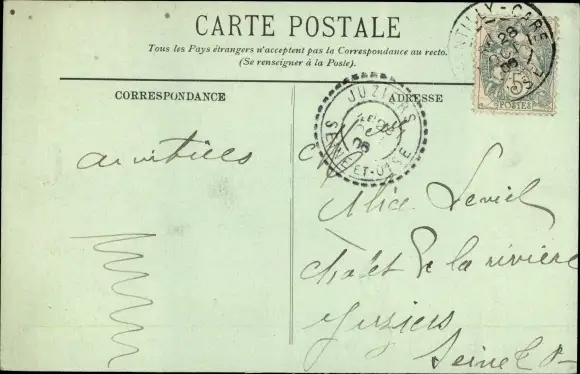 CARTE POSTALE
Tous les Pays étrangers n'acceptent pas la Correspondance au recto.
(Se renseigner à la Poste).
CORRESPONDANCE
ADRESSE
TILLY-GARE
28
08
5
POSTES
JUZIERS
08
SEINE-ET-OISE
Alice
chalet de la rivière
Juziers
Seine &